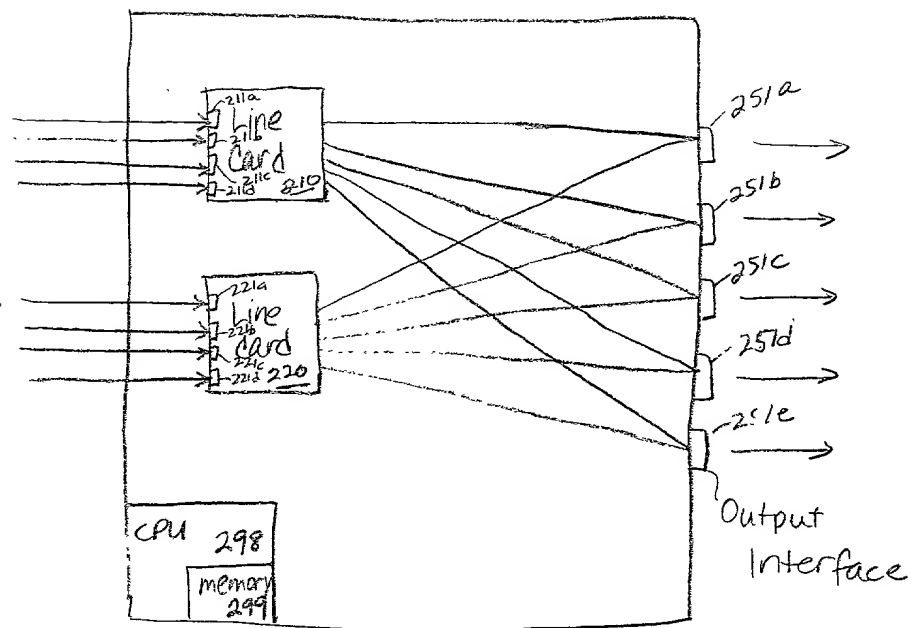 211a
Line
211b
Card
211c
211d
210
221a
Line
221b
Card
221c
221d 220
251a
251b
251c
251d
251e
Output
Interface
CPU 298
memory
299